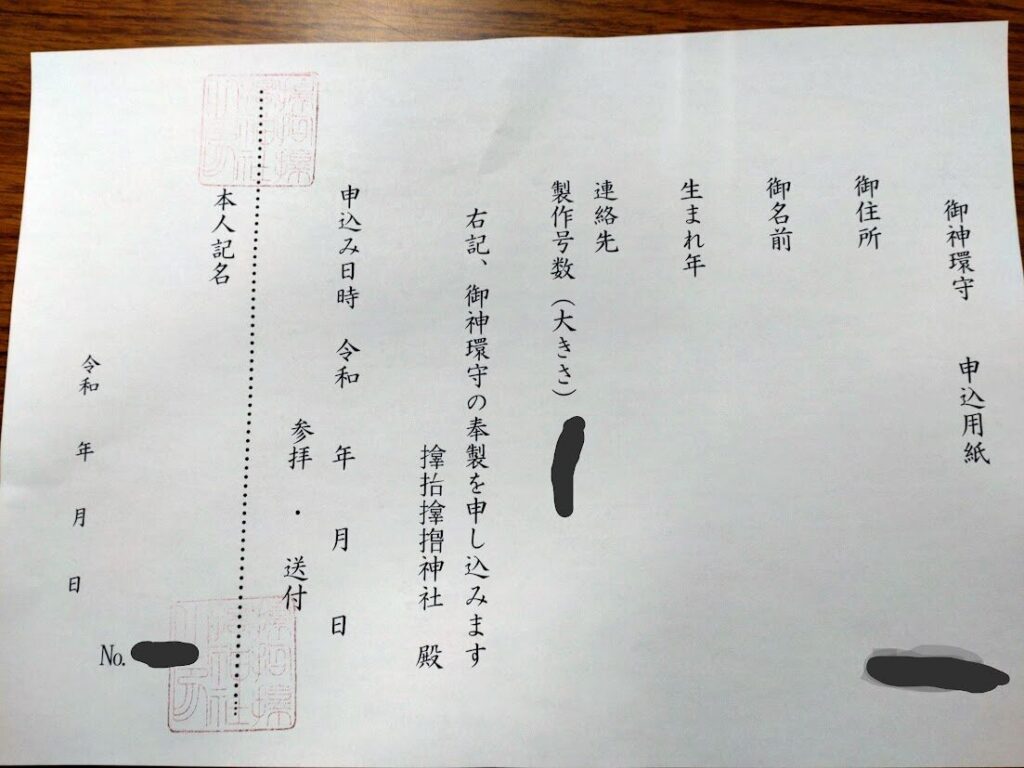 御神環守　申込用紙
御住所
御名前
生まれ年
連絡先
製作号数（大きさ）
右記、御神環守の奉製を申し込みます
𪮷抬𪮷𪮇神社　殿
申込み日時　令和　年　月　日
参拝・送付
本人記名
令和　年　月　日
No.